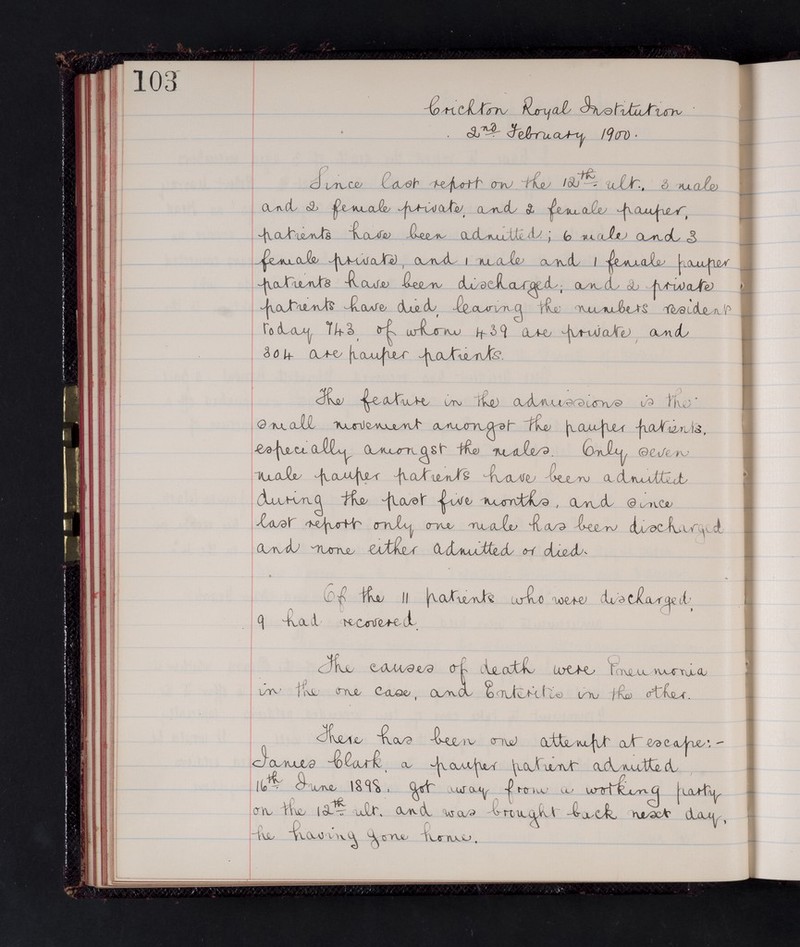 103
Crichton Royal Institution
2nd February 1900.
Since last report on the 12th ult., 3 male
and 2 female private, and 2 female pauper,
patients have been admitted; 6 male and 3
female private, and 1 male and 1 female pauper
patients have been discharged; and 2 private
patients have died, leaving the numbers resident
today 743, of whom 439 are private, and
304 are pauper patients.
The feature in the admissions is the
small movement amongst the pauper patients,
especially amongst the males. Only seven
male pauper patients have been admitted
during the past five months, and since
last report only one male has been discharged
and none either admitted or died.
Of the 11 patients who were discharged,
9 had recovered.
The causes of death were Pneumonia
in the one case, and Enteritis in the other.
There has been one attempt at escape:-
James Clark, a pauper patient admitted
16th June 1898, got away from a working party
on the 12th ult. and was brought back next day,
he having gone home.